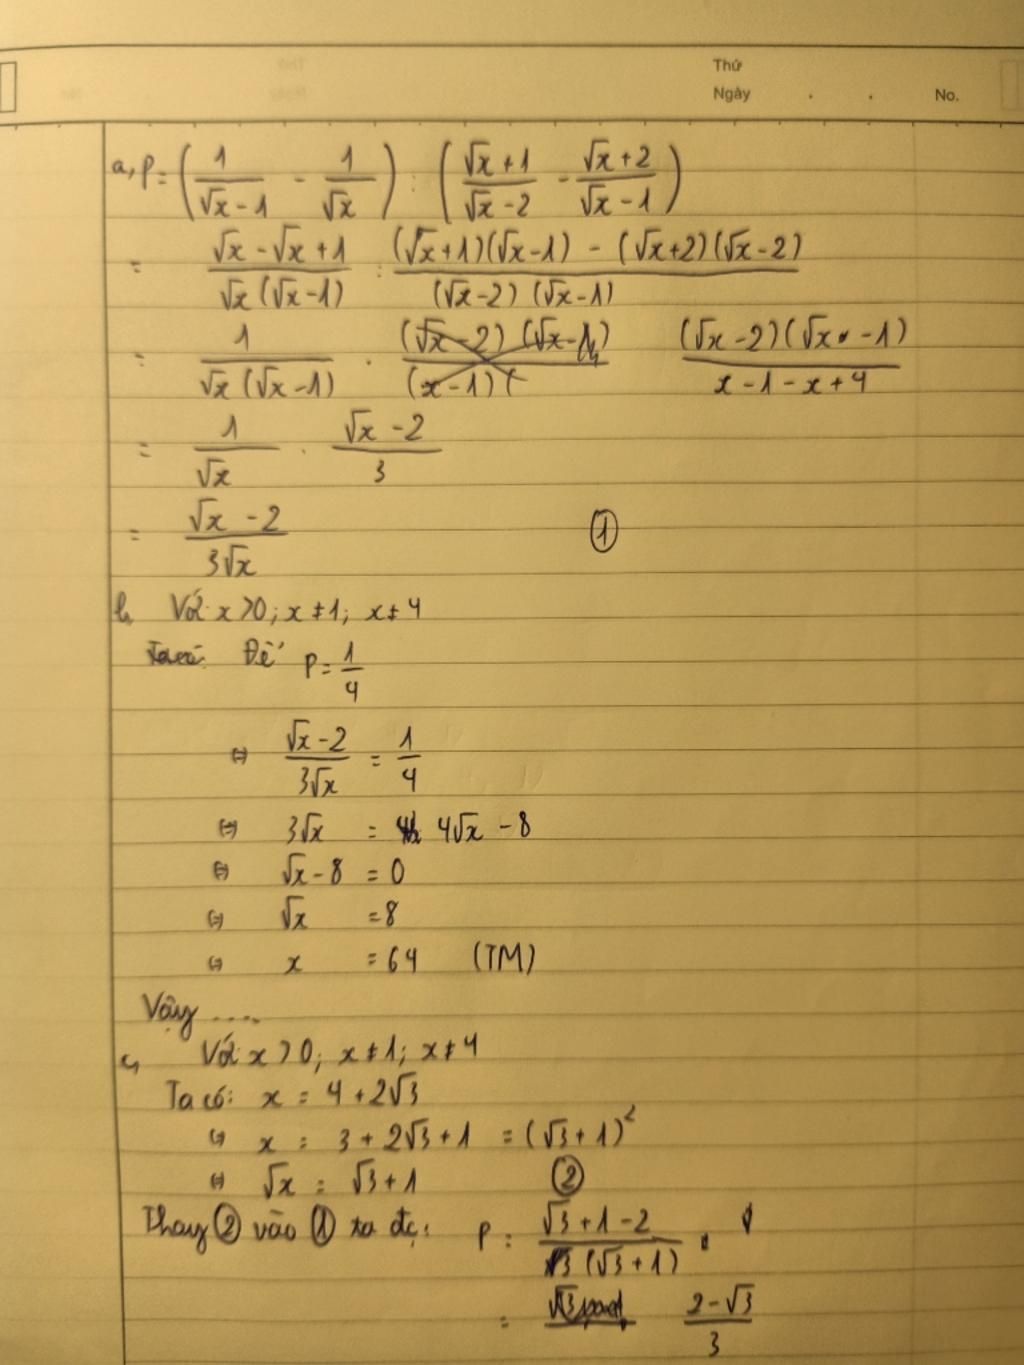 Thứ
Ngày . . No.
a, P = (1/(√x - 1) - 1/√x) : ((√x + 1)/(√x - 2) - (√x + 2)/(√x - 1))
= (√x - √x + 1)/(√x (√x - 1)) : ((√x + 1)(√x - 1) - (√x + 2)(√x - 2))/((√x - 2)(√x - 1))
= 1/(√x (√x - 1)) . ((√x - 2)(√x - 1))/(x - 1 - x + 4)
= 1/√x . (√x - 2)/3
= (√x - 2)/(3√x) ①
b, Với x > 0; x ≠ 1; x ≠ 4
Để P = 1/4
⇔ (√x - 2)/(3√x) = 1/4
⇔ 3√x = 4√x - 8
⇔ √x - 8 = 0
⇔ √x = 8
⇔ x = 64 (TM)
Vậy ....
c, Với x > 0; x ≠ 1; x ≠ 4
Ta có: x = 4 + 2√3
⇔ x = 3 + 2√3 + 1 = (√3 + 1)²
⇔ √x = √3 + 1 ②
Thay ② vào ① ta đc: P = (√3 + 1 - 2)/(3 (√3 + 1))
= (2 - √3)/3